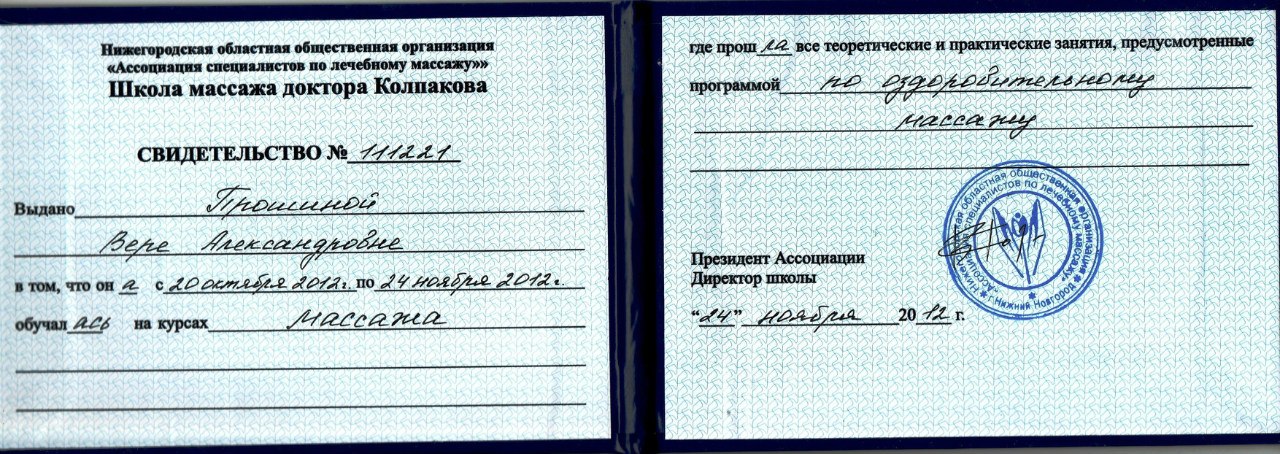 Нижегородская областная общественная организация
«Ассоциация специалистов по лечебному массажу»»
Школа массажа доктора Колпакова
СВИДЕТЕЛЬСТВО № 111221
Выдано Прошиной
Вере Александровне
в том, что он а с 20 октября 2012г. по 24 ноября 2012г.
обучал ась на курсах массажа
где прош ла все теоретические и практические занятия, предусмотренные
программой по оздоровительному
массажу
Президент Ассоциации
Директор школы
“24” ноября 2012 г.
Нижегородская областная общественная организация
«Ассоциация специалистов по лечебному массажу»
г.Нижний Новгород